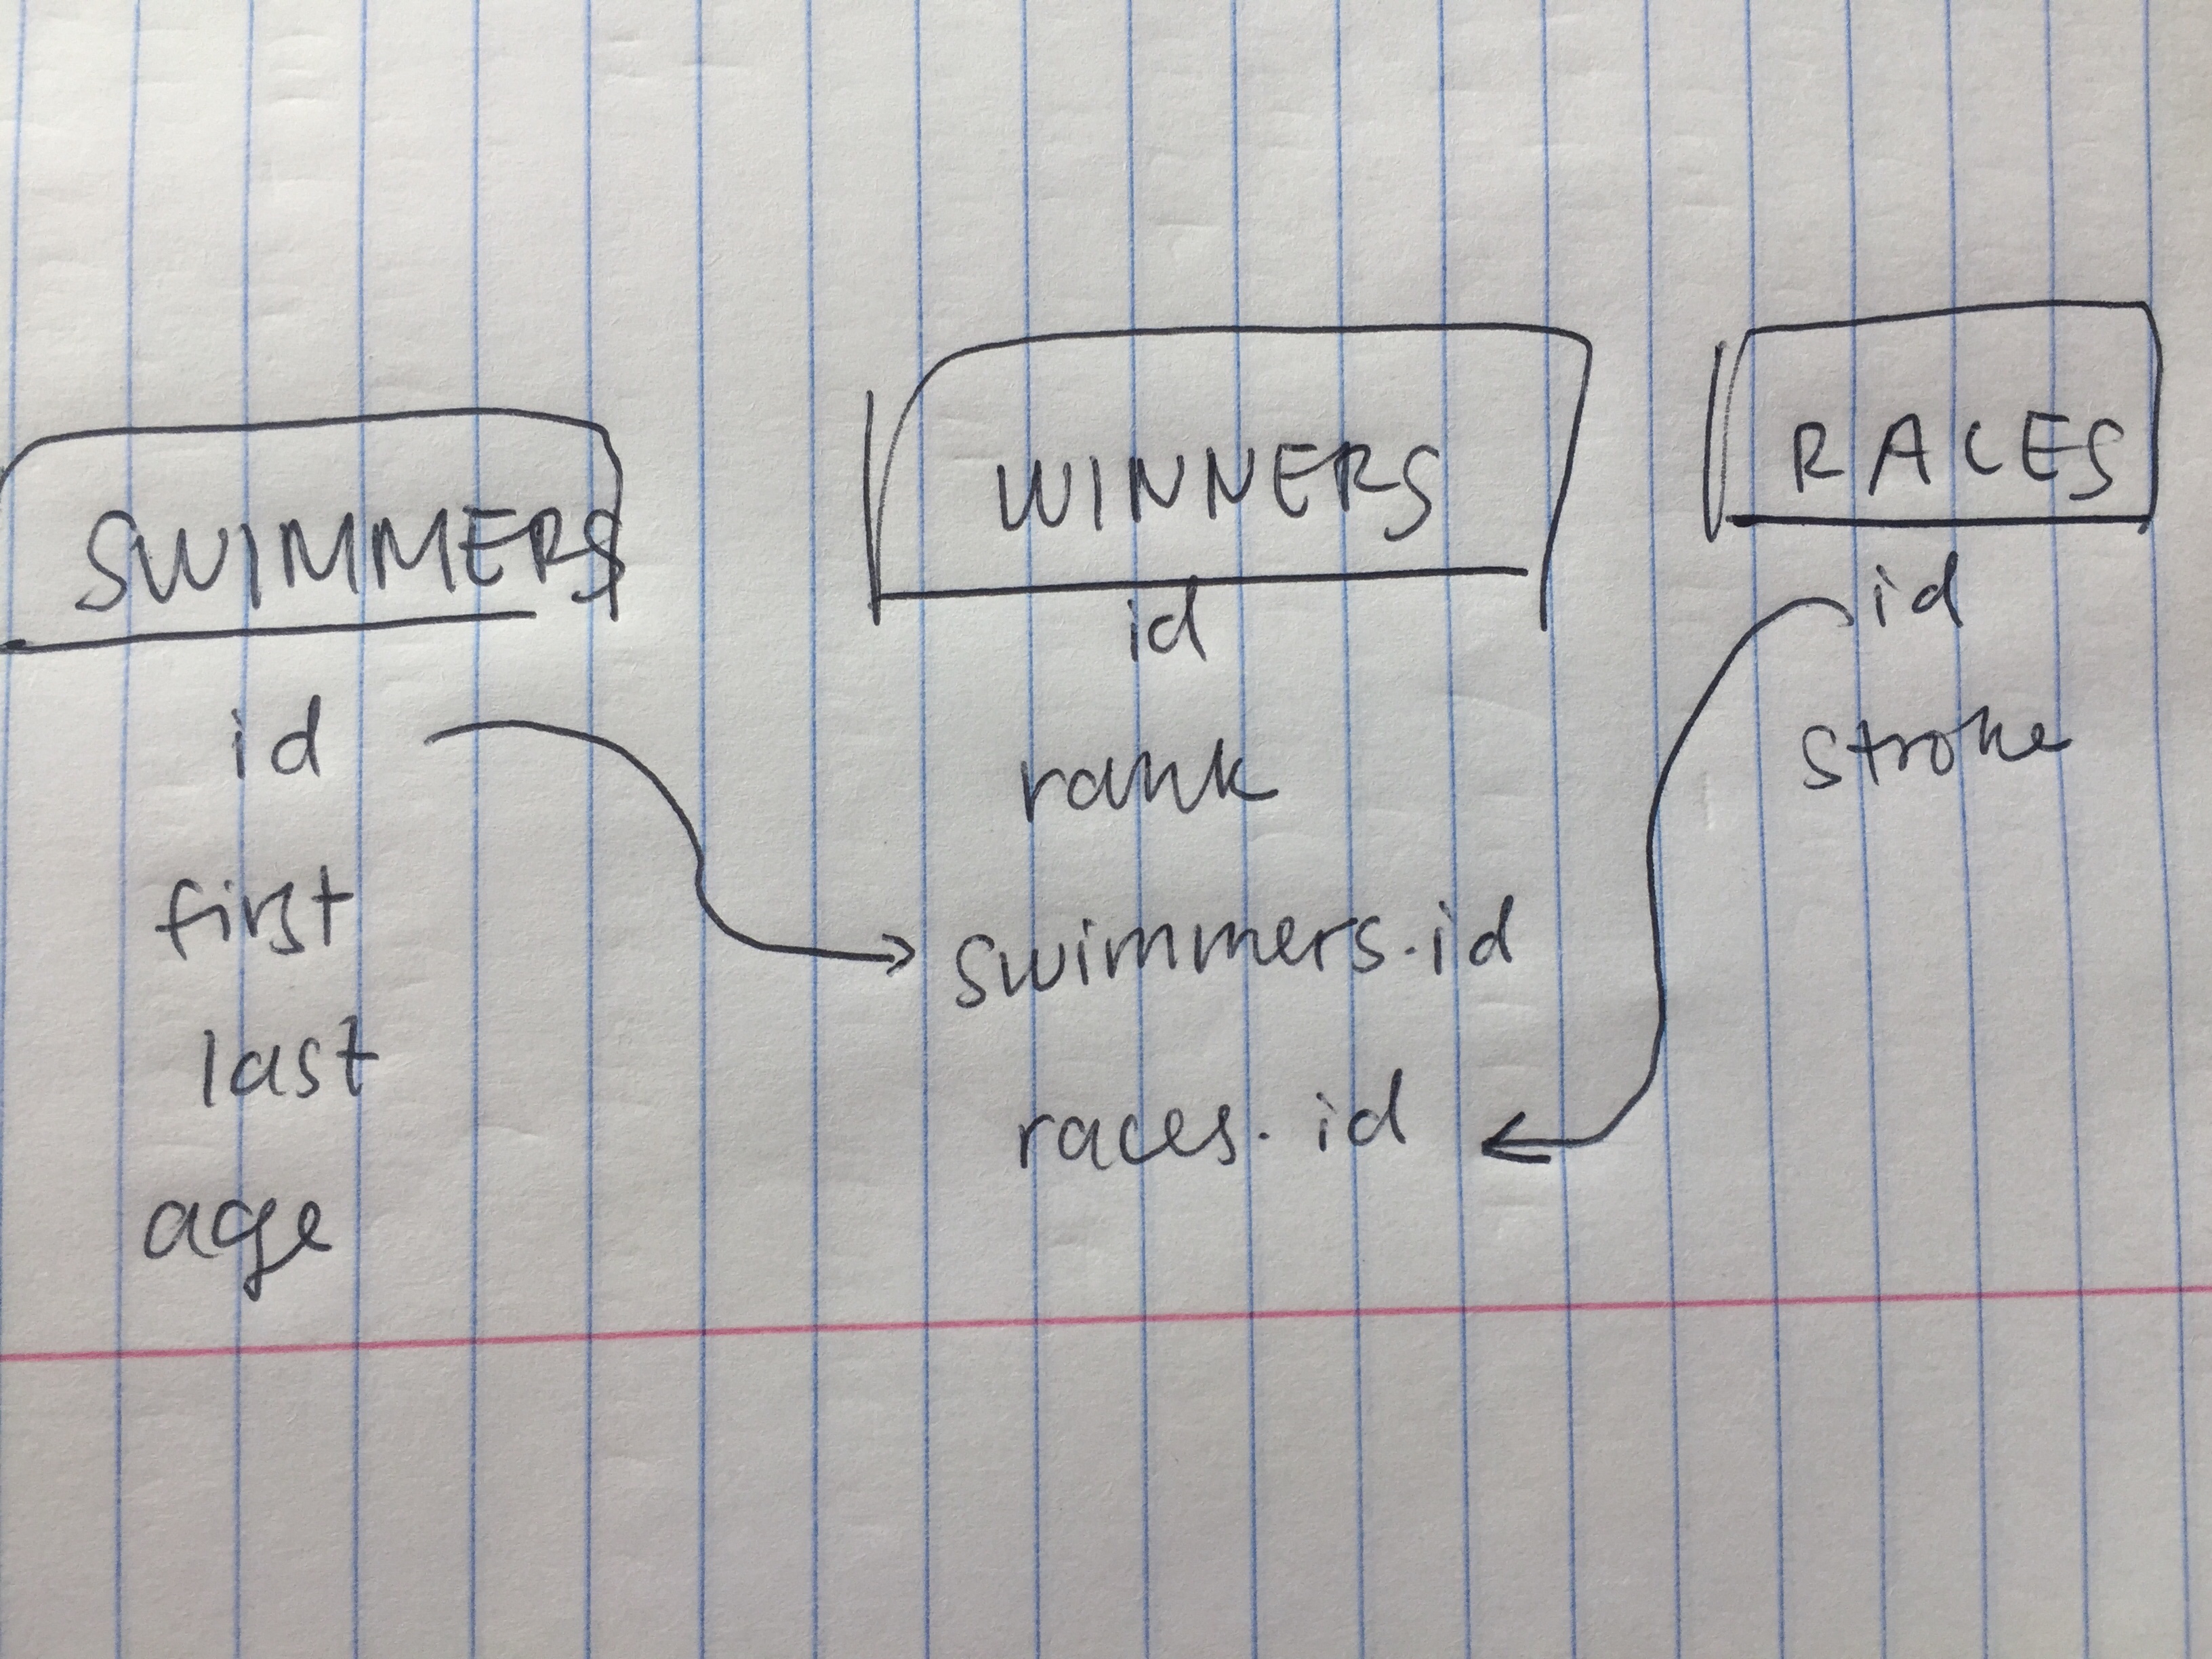 SWIMMERS
id
first
last
age
WINNERS
id
rank
swimmers.id
races.id
RACES
id
stroke